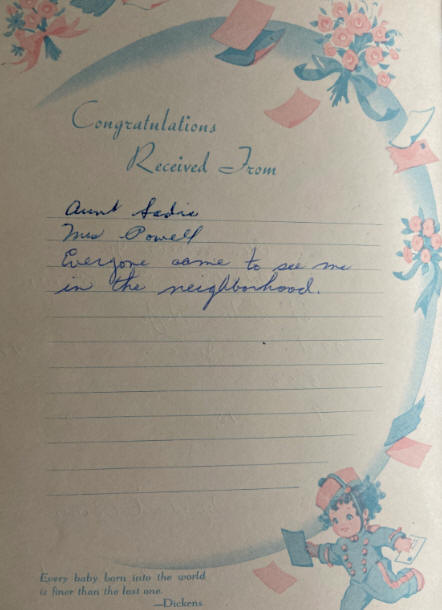 Congratulations
Received From
Aunt Sadie
Mrs Powell
Everyone came to see me
in the neighborhood.
Every baby born into the world
is finer than the last one.
—Dickens